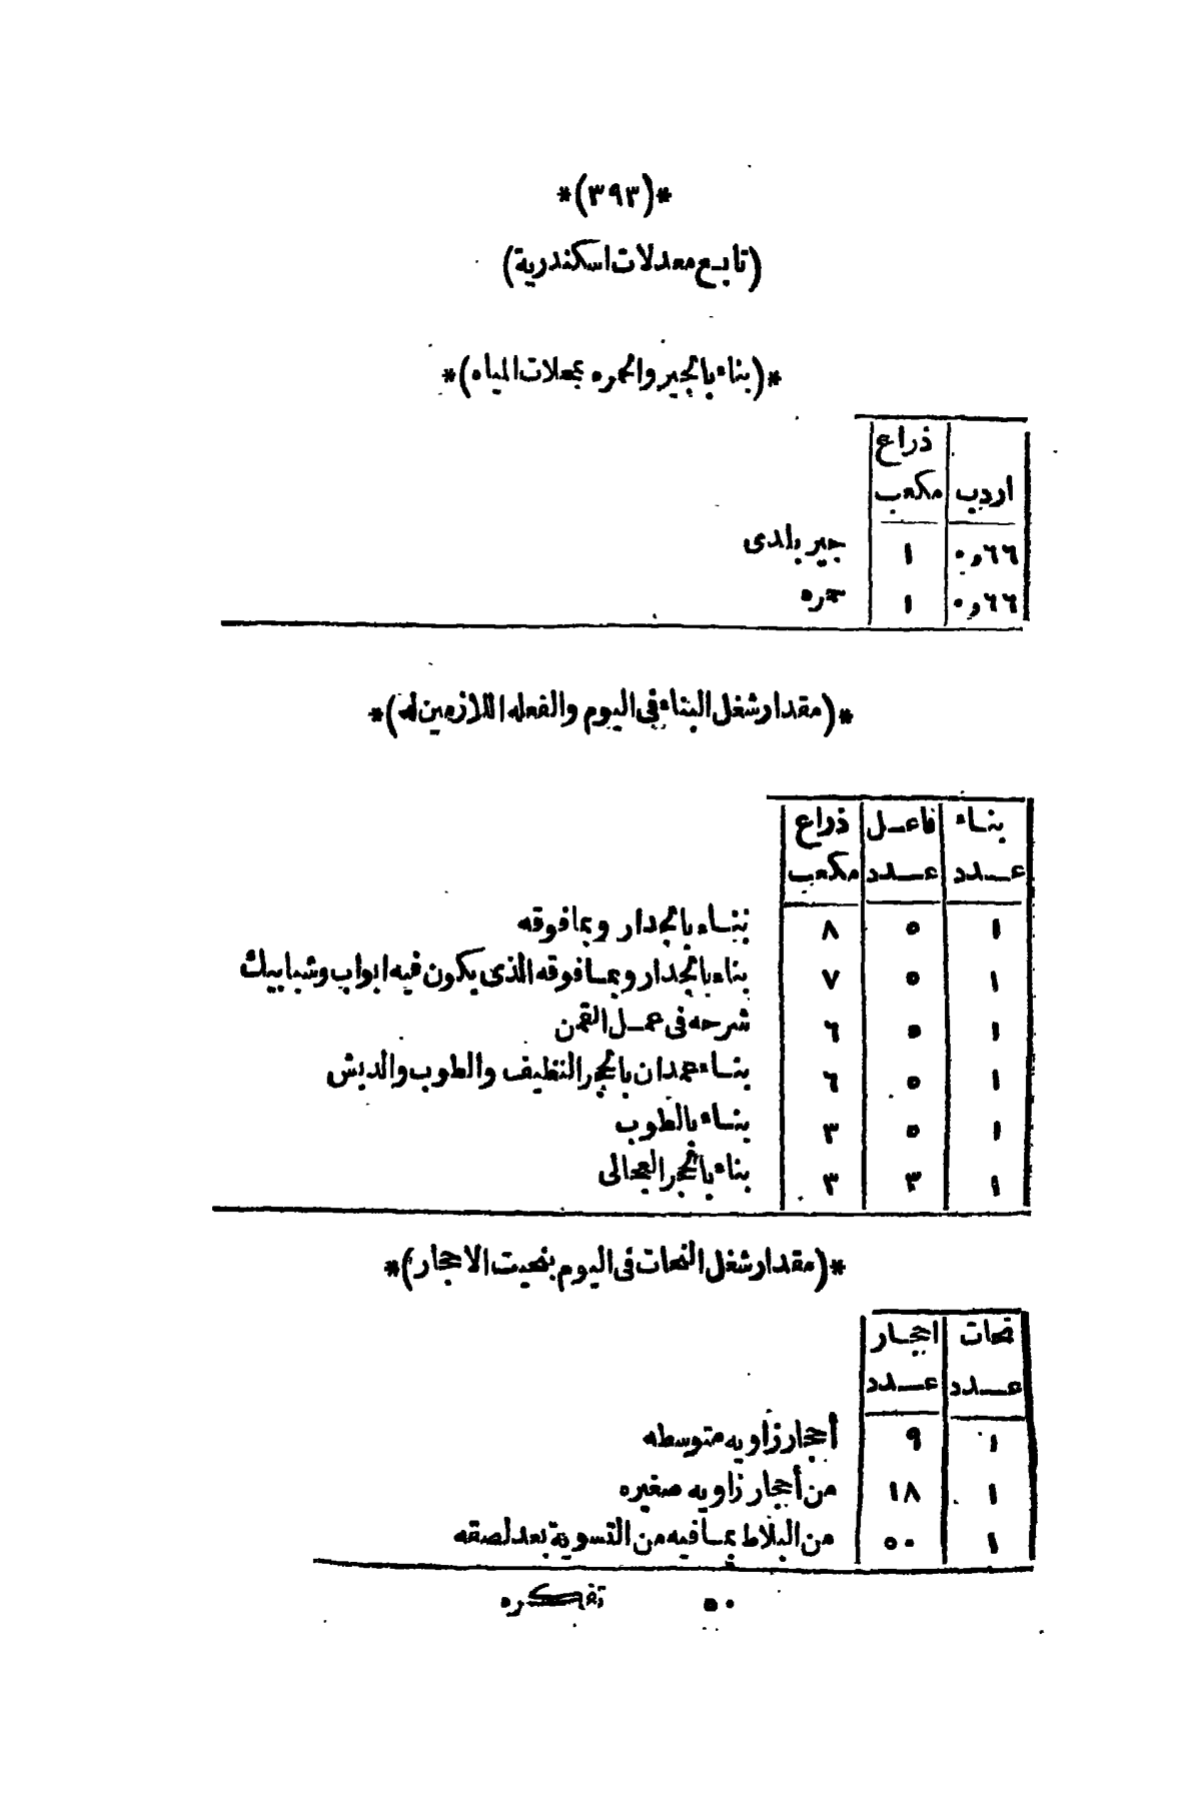 *(٣٩٣)*
(تابع معدلات اسكندرية)
*(بناء بالجير والحمره بمحلات المياه)*
ذراع
اردب مكعب
٠٫٦٦ ١ جير بلدى
٠٫٦٦ ١ حمره
*(مقدار شغل البناء فى اليوم والفعله اللازمين له)*
بناء فاعل ذراع
عدد عدد مكعب
١ ٥ ٨ بناء بالجدار وبمافوقه
١ ٥ ٧ بناء بالجدار وبمافوقه الذى يكون فيه ابواب وشبابيك
١ ٥ ٦ شرحه فى عمل القمن
١ ٥ ٦ بناء عمدان بالحجر النظيف والطوب والدبش
١ ٥ ٣ بناء بالطوب
١ ٣ ٣ بناء بالحجر العجالى
*(مقدار شغل النحات فى اليوم بنحيت الاحجار)*
نحات احجار
عدد عدد
١ ٩ أحجار زاويه متوسطه
١ ١٨ من أحجار زاويه صغيره
١ ٥٠ من البلاط بمافيه من التسوية بعد لصقه
٥٠ تفكره